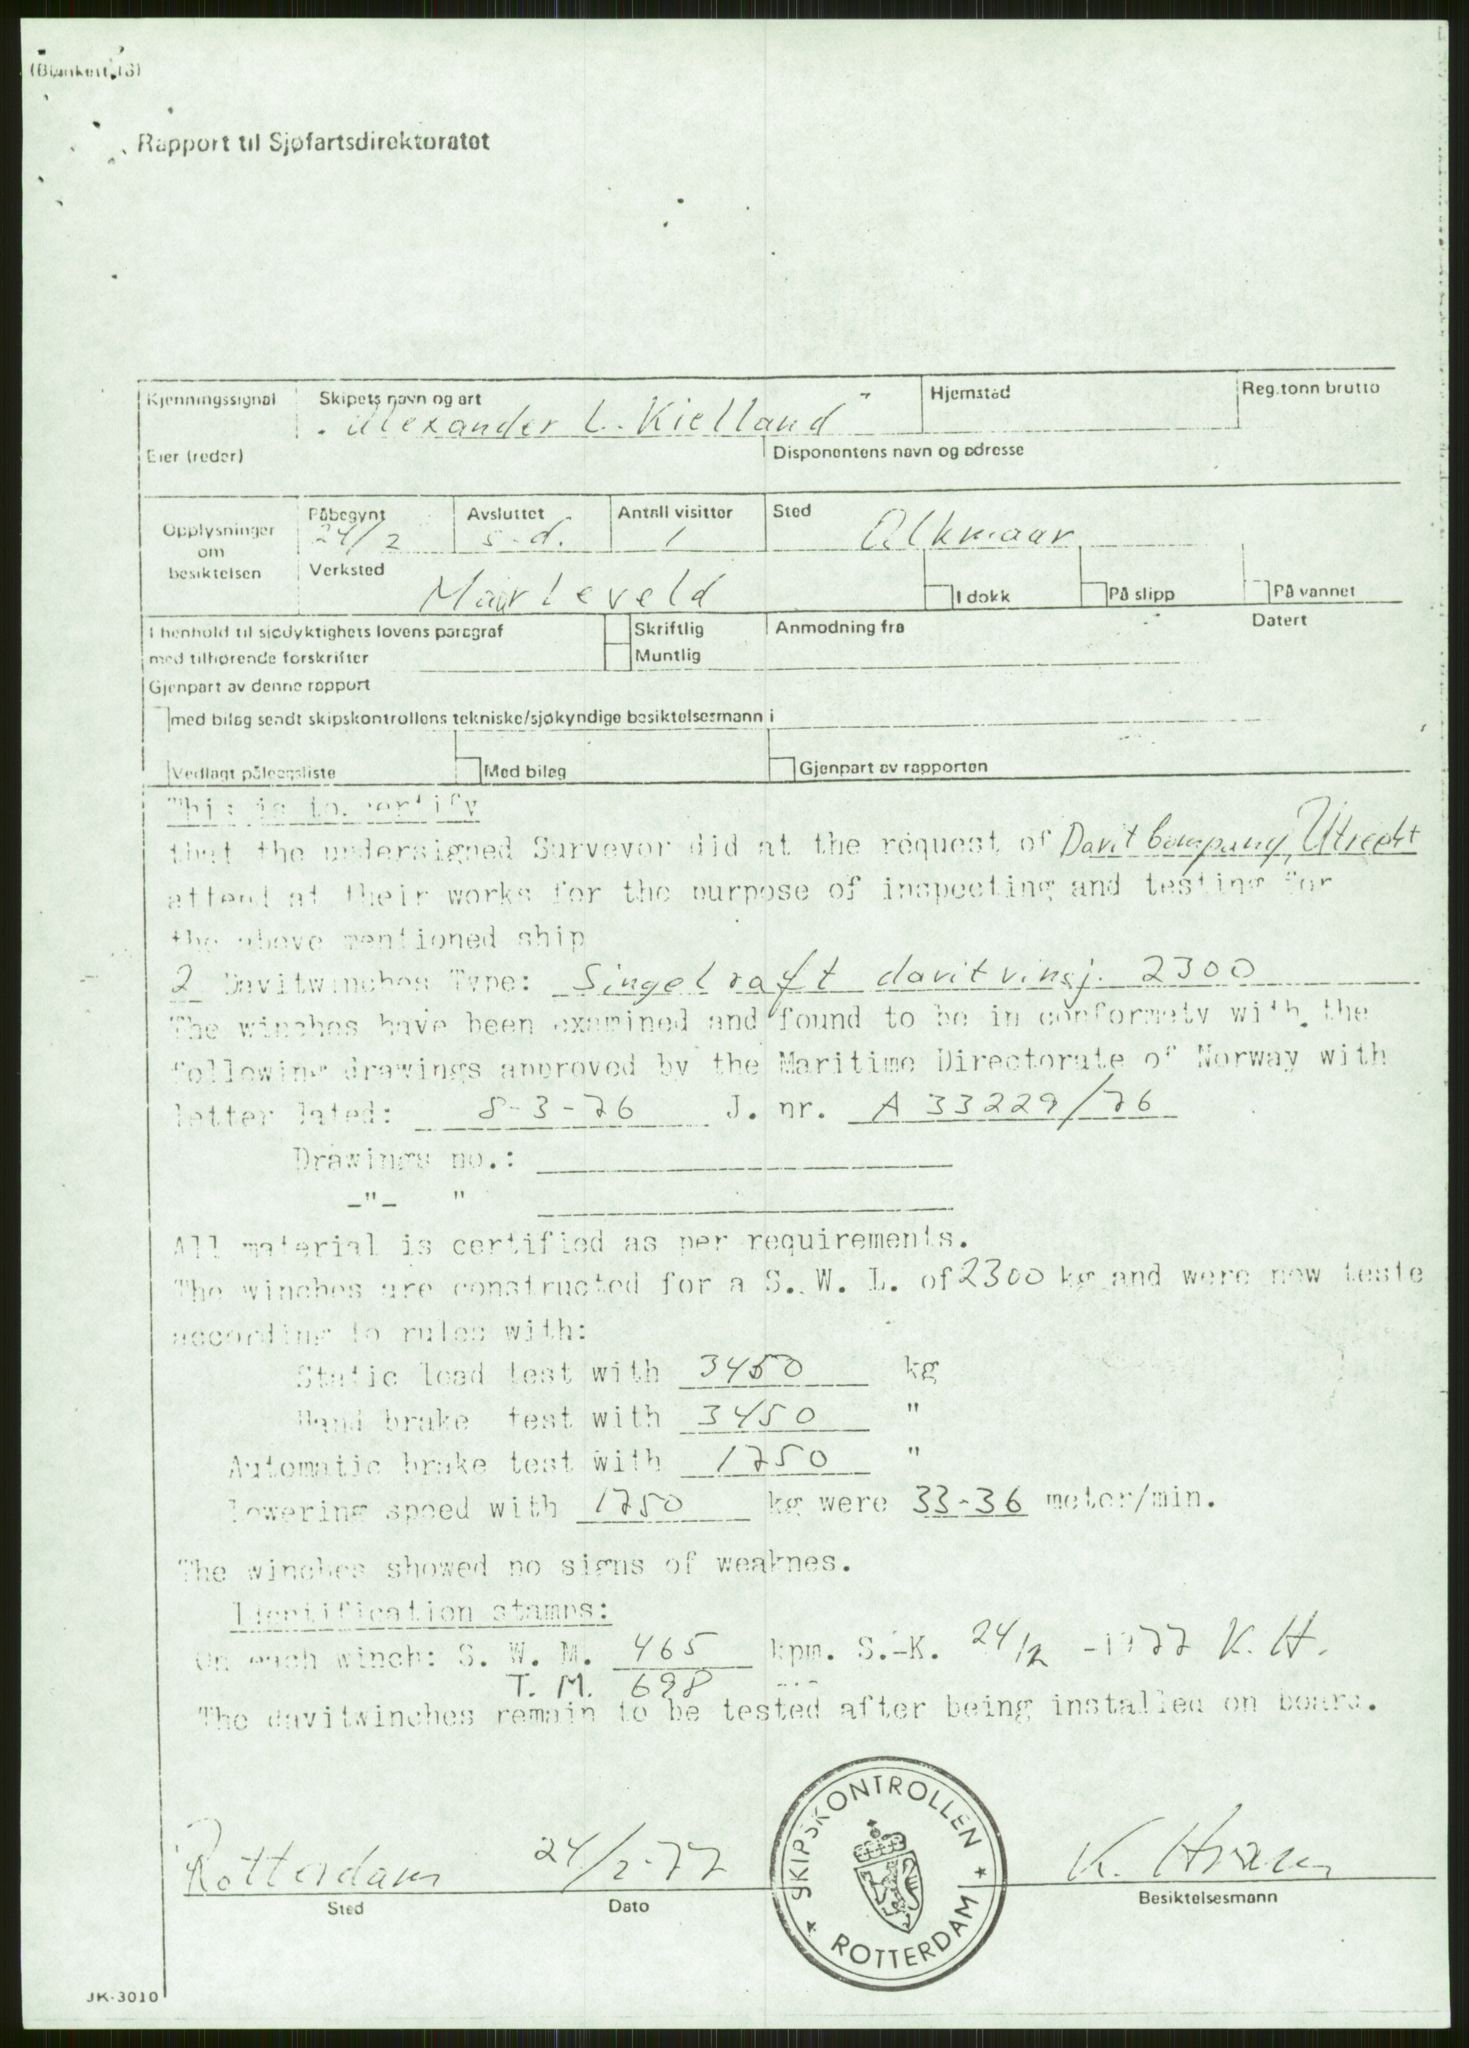 (Blankett 16)
Rapport til Sjøfartsdirektoratet
Kjenningssignal
Skipets navn og art
Hjemsted
Reg.tonn brutto
"Alexander L. Kielland"
Eier (reder)
Disponentens navn og adresse
Opplysninger om besiktelsen
Påbegynt
Avsluttet
Antall visitter
Sted
24/2
s.d.
1
Alkmaar
Verksted
Marleveld
I dokk
På slipp
På vannet
I henhold til sjødyktighets lovens paragraf
Skriftlig
Anmodning fra
Datert
med tilhørende forskrifter
Muntlig
Gjenpart av denne rapport
med bilag sendt skipskontrollens tekniske/sjøkyndige besiktelsesmann i
Vedlagt påleggsliste
Med bilag
Gjenpart av rapporten
This is to certify
that the undersigned Surveyor did at the request of Davit Company, Utrecht
attend at their works for the purpose of inspecting and testing for
the above mentioned ship
2 Davitwinches Type: Singel raft davitvinsj. 2300
The winches have been examined and found to be in conformety with the
following drawings approved by the Maritime Directorate of Norway with
letter dated: 8-3-76 J. nr. A 33229/76
Drawings no.:
-"- "
All material is certified as per requirements.
The winches are constructed for a S. W. L. of 2300 kg and were now teste
according to rules with:
Static load test with 3450 kg
Hand brake test with 3450 "
Automatic brake test with 1750 "
Lowering speed with 1750 kg were 33-36 meter/min.
The winches showed no signs of weaknes.
Identification stamps:
On each winch: S. W. M. 465 kpm. S.-K. 24/2 -1977 K. H.
T. M. 698 -"-
The davitwinches remain to be tested after being installed on board.
Rotterdam 24/2-77
K. Hram
Sted
Dato
Besiktelsesmann
SKIPSKONTROLLEN
ROTTERDAM
JK-3010